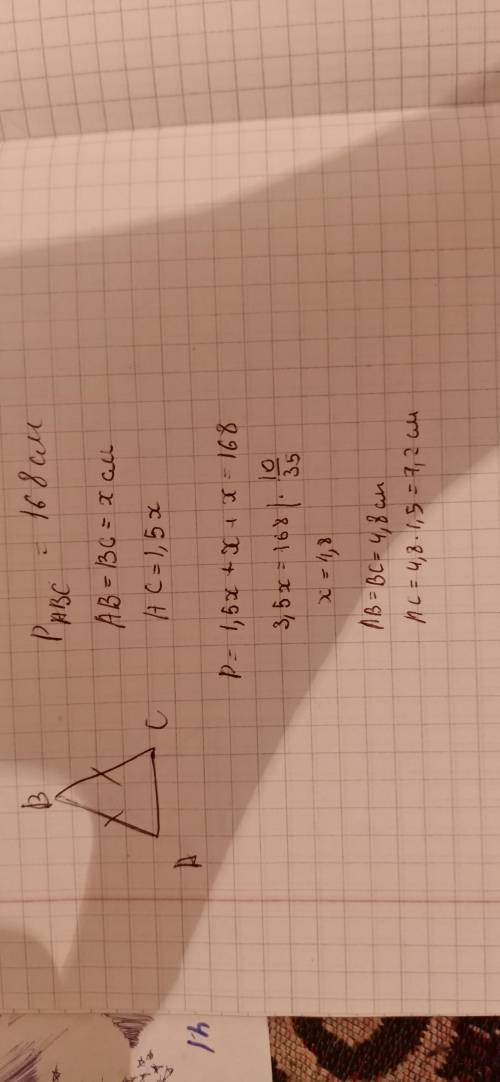 P_ABC = 168 см
AB = BC = x см
AC = 1,5x
B
C
A
P = 1,5x + x + x = 168
3,5x = 168 | · 10/35
x = 4,8
AB = BC = 4,8 см
AC = 4,8 · 1,5 = 7,2 см